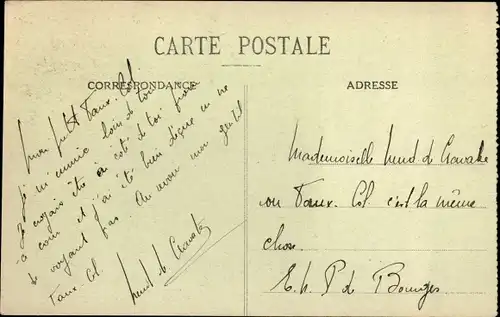 CARTE POSTALE
CORRESPONDANCE
mon petit Faux. Col.
je m'ennuie loin de toi
je croyais être à côté de toi pour
ce soir et j'ai été bien déçue en ne
te voyant pas. Au revoir mon gentil
Faux Col.
ADRESSE
Mademoiselle de
ou Faux. Col. c'est la même
chose
E. h. P de Bourges